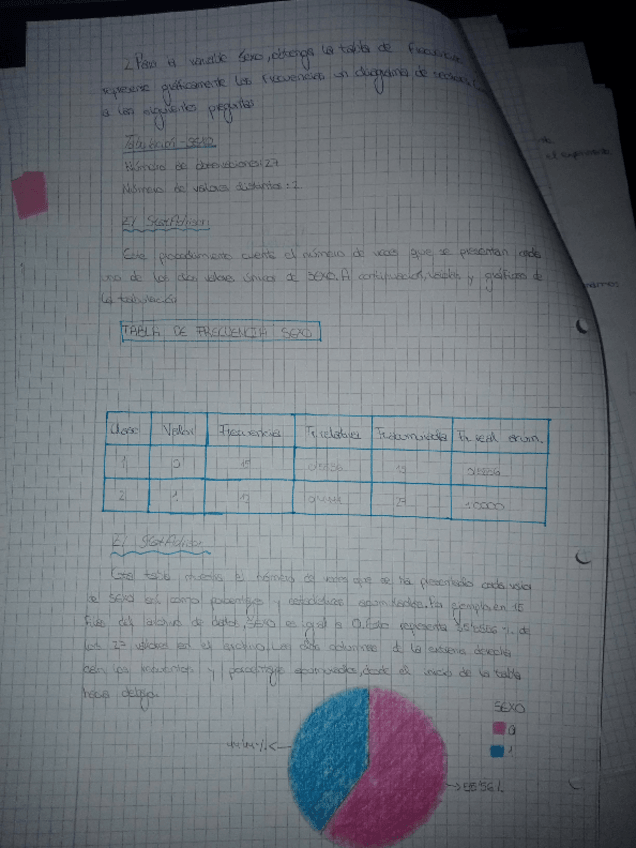 2. Para la variable Sexo, obtenga la tabla de frecuencia
represente gráficamente las frecuencias un diagrama de
a las siguientes preguntas
Tabulación - SEXO
Número de observaciones: 27
Número de valores distintos: 2
El StatAdvisor
Este procedimiento cuenta el número de veces que se presentan cada
uno de los dos valores únicos de SEXO. A continuación, tablas y gráficos de
la tabulación
TABLA DE FRECUENCIA SEXO
Clase Valor Frecuencia Fr. relativa F. acumulada Fr. rel acum.
1 0 15 0.5556 15 0.5556
2 1 12 0.4444 27 1.0000
El StatAdvisor
Esta tabla muestra el número de veces que se ha presentado cada valor
de SEXO así como porcentajes y estadísticas acumuladas. Por ejemplo, en 15
filas del archivo de datos, SEXO es igual a 0. Esto representa 55.5556 % de
los 27 valores en el archivo. Las dos columnas de la extrema derecha
dan los recuentos y porcentajes acumulados, desde el inicio de la tabla
hacia debajo.
SEXO
0
1
44.44%
55.56%